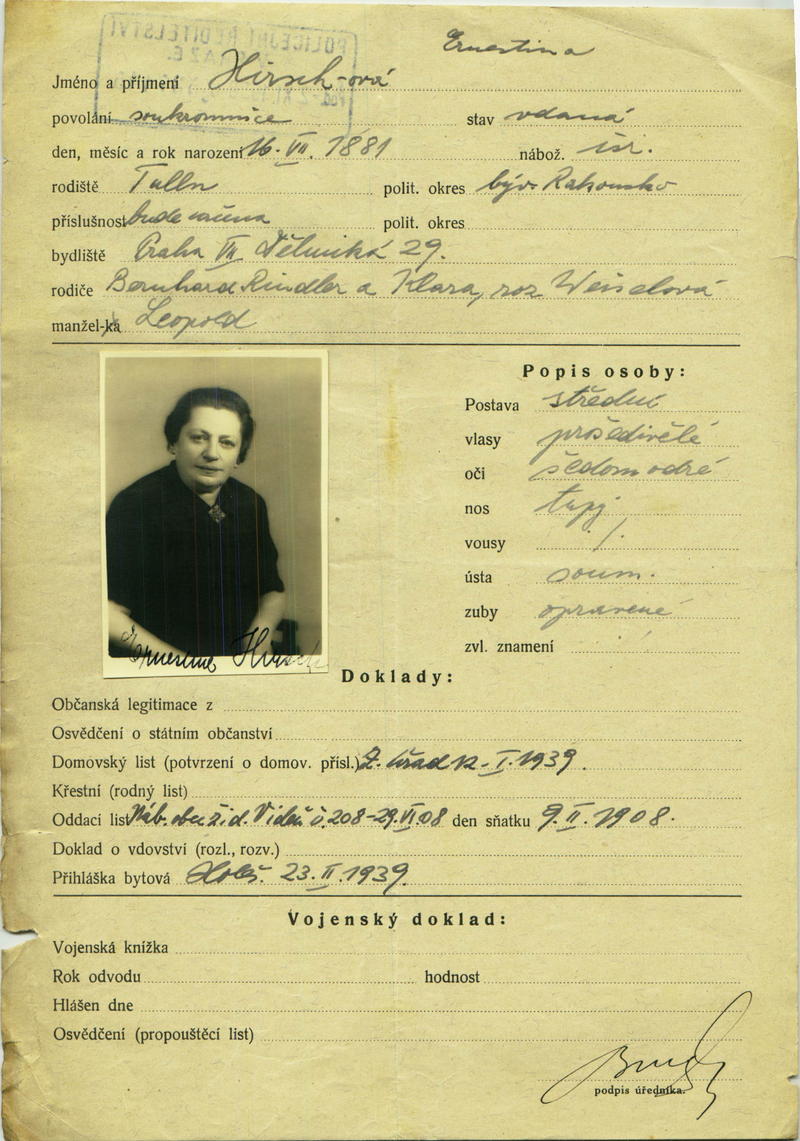 Ernestina
POLICEJNÍ ŘEDITELSTVÍ
Jméno a příjmení Hirsch-ová
povolání soukromnice stav vdaná
den, měsíc a rok narození 16. VII. 1881 nábož. isr.
rodiště Tulln polit. okres býv. Rakousko
příslušnost bude polit. okres
bydliště Praha VII Dělnická 29.
rodiče Bernhard Rindler a Klara, roz Weiselová
manžel-ka Leopold
Popis osoby:
Postava střední
vlasy prošedivělé
oči šedomodré
nos tupý
vousy /.
ústa soum.
zuby opravené
zvl. znamení /
Ernestine Hirsch
Doklady:
Občanská legitimace z
Osvědčení o státním občanství
Domovský list (potvrzení o domov. přísl.) Z. úřad 12. I. 1939.
Křestní (rodný list)
Oddací list Náb. obec ž. d. Videň č. 208-29. VI. 08 den sňatku 9. II. 1908.
Doklad o vdovství (rozl., rozv.)
Přihláška bytová Holeš. 23. II. 1939.
Vojenský doklad:
Vojenská knížka
Rok odvodu hodnost
Hlášen dne
Osvědčení (propouštěcí list)
podpis úředníka.